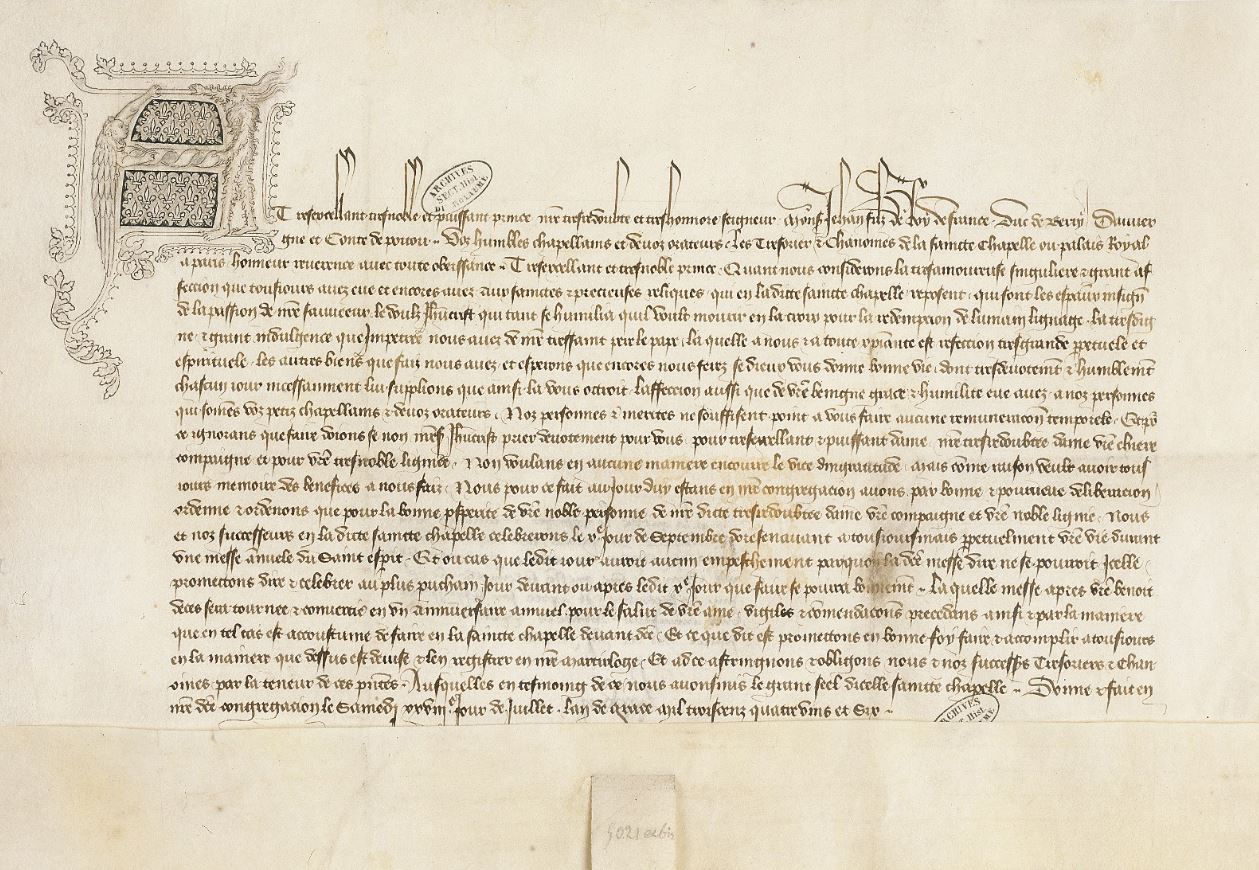 A Tresexcellant tresnoble et puissant prince nre tresredoubte et treshonnore seigneur Mons Jehan filz de Roy de france Duc de Berry Dauver
gne et Conte de poitou Voz humbles chapellains et devoz orateurs Les Tresorier & Chanoines de la saincte Chapelle ou palais Royal
a paris honneur reverence avec toute obeissance Tresexcellant et tresnoble prince Quant nous considerons la tresamoureuse singuliere & grant af
feccion que tousiours avez eue et encores avez aux sainctes & precieuses reliques qui en ladicte saincte chapelle reposent qui sont les espaulx insign
de la passion de nre sauveeur le doulz Jhucrist qui tant se humilia quil voult mourir en la croix pour la redempcion de lumain lignage la tresdig
ne & grant indulgence que Impetree nous avez de nre tressaint pere le pape la quelle a nous & a toute xpiante est refeccion tresgrande ppetuele et
espirituele les autres biens que faiz nous avez et esperons que encores nous ferez se dieu vous donne bonne vie dont tresdevotemt & humblemt
chascun iour incessanment lui supplions que ainsi la vous octroit Laffeccion aussi que de vre benigne grace & humilite eue avez a noz personnes
qui sommes voz petiz chapellains & devoz orateurs Noz personnes & merites ne souffisent point a vous faire aucune remuneracon temporele Et pour
ce ignorans que faire doions se non nres Jhucrist prier devotement pour vous pour tresexcellant & puissant dame nre tresredoubtee dame vre chiere
compaigne et pour vre tresnoble lignee Non voulans en aucune maniere encourre le vice dingratitude Mais come raison veult avoir tous
iours memoire des benefices a nous faiz Nous pour ce fait au Jour duy estans en nre congregacion avons par bonne & pourveue deliberacion
ordenne & ordenons que pour la bonne psperite de vre noble personne de nre dicte tresredoubtee dame vre compaigne et vre noble lignie Nous
et noz successeurs en la dicte saincte chapelle celebrerons le ve Jour de Septembre doresenavant a tousioursmais ppetuelment vre vie durant
une messe annuele du Saint esprit Et ou cas que ledit iour auroit aucun empeschement parquoy la dce messe dire ne se pourroit Icelle
promettons dire & celebrer au plus puchain Jour devant ou apres ledit ve Jour que faire se pourra bonnemt La quelle messe apres vre benoit
deces sera tournee & convertie en un anniversaire annuel pour le salut de vre ame vigiles & comendacons precedans ainsi & par la maniere
que en tel cas est acoustume de faire en la saincte chapelle devant dce Et ce que dit est promettons en bonne foy faire & accomplir a tousiours
en la maniere que dessus est devise & len registrer en nre martirloge Et ad ce astringnons & obligons nous & noz successrs Tresoriers & Chan
oines par la teneur de ces pntes Ausquelles en tesmoing de ce nous avons mis le grant seel dicelle saincte chapelle Donne & fait en
nre dce congregacion le Samedi xxviije Jour de Juillet lan de grace Mil trois cenz quatre vins et Six
ARCHIVES
SECT. HIST.
DU ROYAUME
ARCHIVES
SECT. HIST.